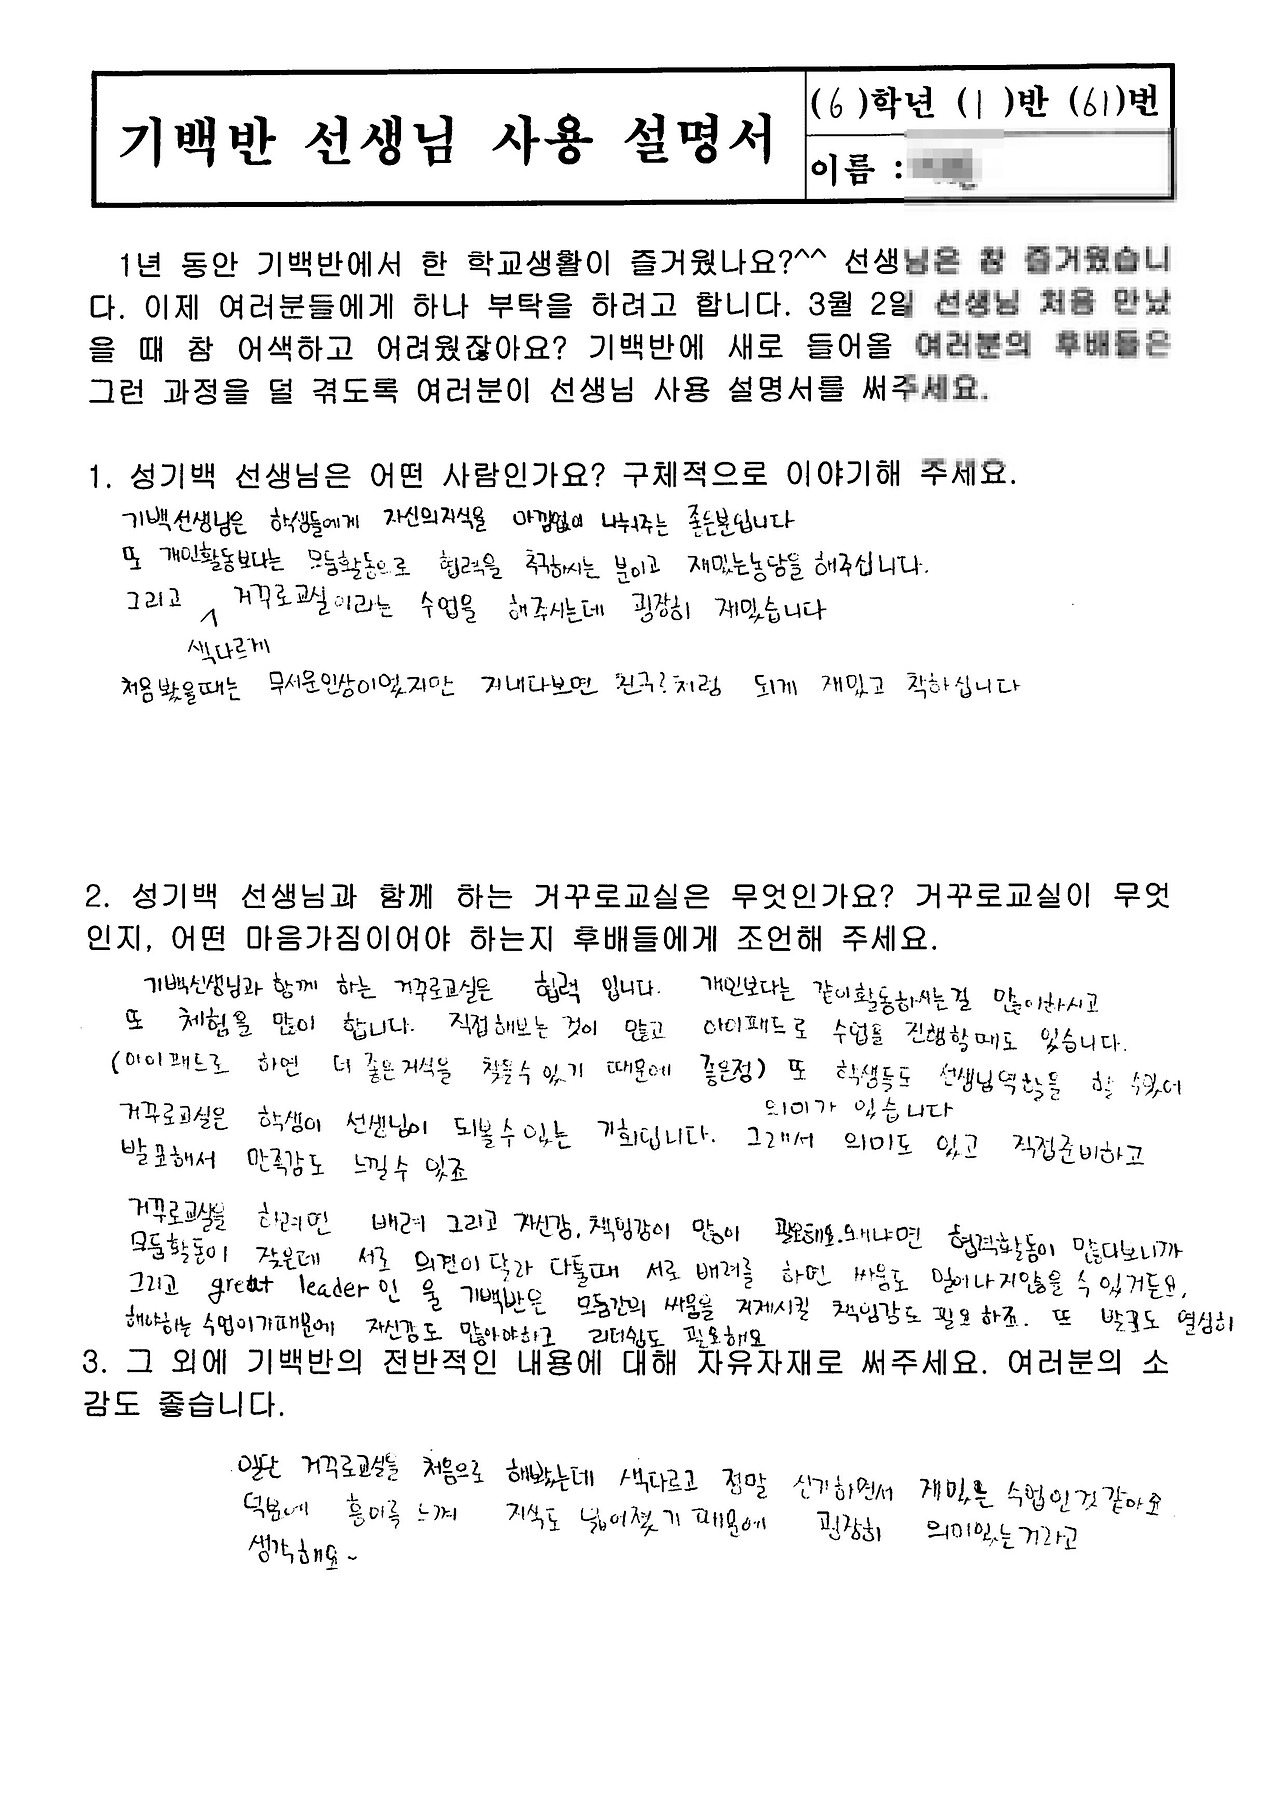 기백반 선생님 사용 설명서
(6)학년 (1)반 (61)번
이름 :
1년 동안 기백반에서 한 학교생활이 즐거웠나요?^^ 선생님은 참 즐거웠습니
다. 이제 여러분들에게 하나 부탁을 하려고 합니다. 3월 2일 선생님 처음 만났
을 때 참 어색하고 어려웠잖아요? 기백반에 새로 들어올 여러분의 후배들은
그런 과정을 덜 겪도록 여러분이 선생님 사용 설명서를 써주세요.
1. 성기백 선생님은 어떤 사람인가요? 구체적으로 이야기해 주세요.
기백선생님은 학생들에게 자신의지식을 아낌없이 나눠주는 좋은분입니다
또 개인활동보다는 모둠활동으로 협력을 추구하시는 분이고 재밌는농담을 해주십니다.
그리고 거꾸로교실이라는 수업을 해주시는데 굉장히 재밌습니다
색다르게
처음봤을때는 무서운인상이었지만 지내다보면 친구?처럼 되게 재밌고 착하십니다
2. 성기백 선생님과 함께 하는 거꾸로교실은 무엇인가요? 거꾸로교실이 무엇
인지, 어떤 마음가짐이어야 하는지 후배들에게 조언해 주세요.
기백선생님과 함께 하는 거꾸로교실은 협력 입니다. 개인보다는 같이활동하시는걸 많이하시고
또 체험을 많이 합니다. 직접해보는 것이 많고 아이패드로 수업을 진행할때도 있습니다.
(아이패드로 하면 더 좋은지식을 찾을수있기 때문에 좋은점) 또 학생들도 선생님역할을 할 수있어
의미가 있습니다
거꾸로교실은 학생이 선생님이 되볼수있는 기회입니다. 그래서 의미도 있고 직접준비하고
발표해서 만족감도 느낄수 있죠
거꾸로교실을 하려면 배려 그리고 자신감, 책임감이 많이 필요해요.왜냐면 협력활동이 많다보니까
모둠활동이 잦은데 서로 의견이 달라 다툴때 서로 배려를 하면 싸움도 일어나지않을 수 있거든요.
그리고 great leader인 울 기백반은 모둠간의 싸움을 저제시킬 책임감도 필요하죠. 또 발표도 열심히
해야하는 수업이기때문에 자신감도 많아야하고 리더쉽도 필요해요
3. 그 외에 기백반의 전반적인 내용에 대해 자유자재로 써주세요. 여러분의 소
감도 좋습니다.
일단 거꾸로교실을 처음으로 해봤는데 색다르고 정말 신기하면서 재밌는 수업인것같아요
덕분에 흥미를 느껴 지식도 넓어졌기 때문에 굉장히 의미있는거라고
생각해요~